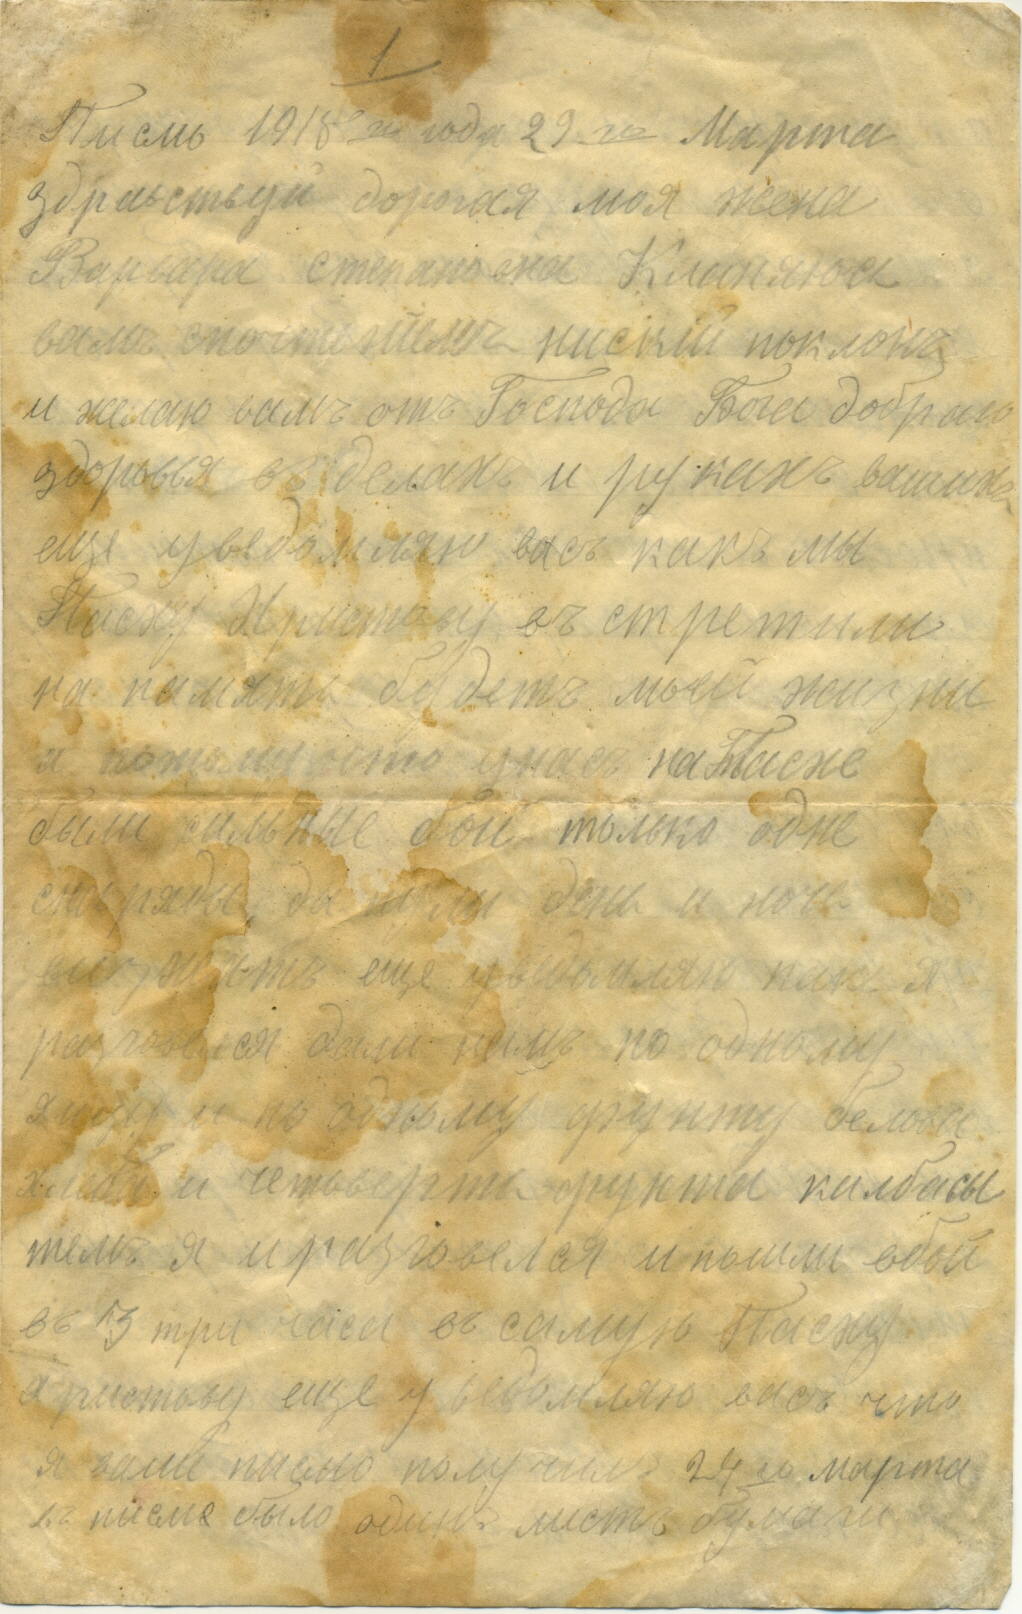 1
Письмъ 1918 го года 29 го Марта
здраьстьуй дорогая моя жена
Варьара степановна Кланяюса
вамъ нискій поклонъ
и желаю вамъ отъ Господа Бога доброго
здоровья въ делахъ и рукахъ вашихъ
еще уведомляю васъ какъ мы
Пасху Христову въстретили
на память будетъ моей жизни
я потомушто унасъ на Пасхе
были сильные бои только одне
снаряды да пули день и ночь
еще уведомляю как я
разговелся дали намъ по одному
яицу и по одному фунту белова
хлеба и четьверть фунта калбасы
темъ я и разговелся и пошли вбой
въ 3 три часа въ самую Пасху
Христову еще уведомляю васъ что
я ваше письмо получилъ 24 го марта
въ писме было одинъ листъ бумаги